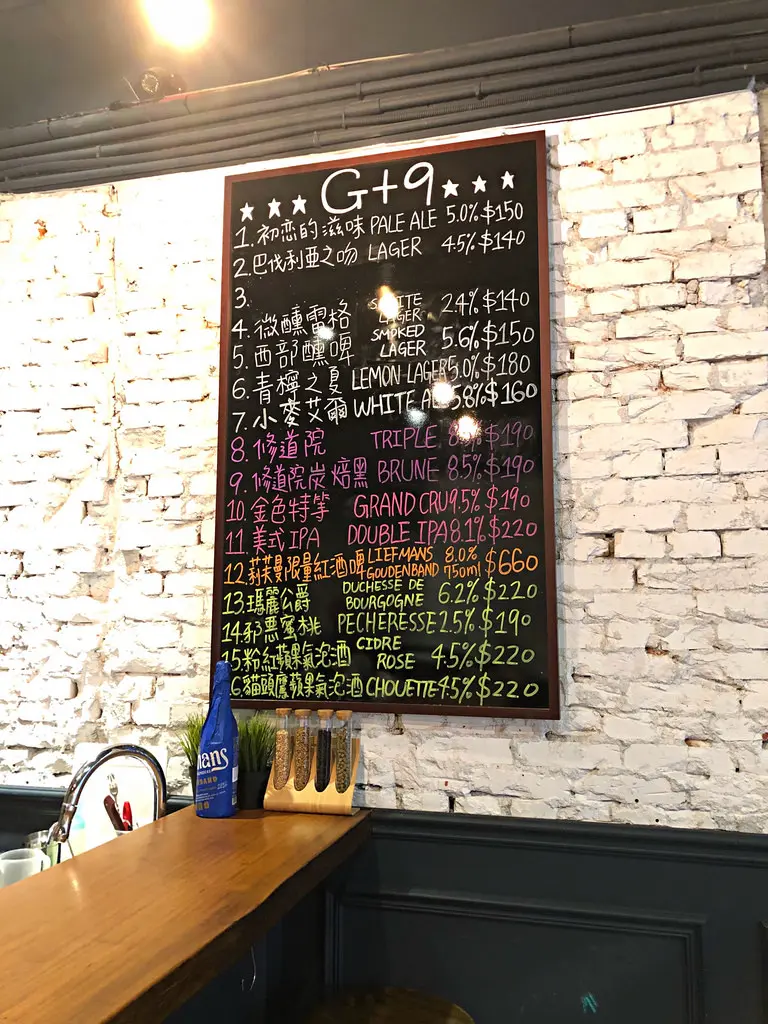 G+9
1. 初恋的滋味 PALE ALE 5.0% $150
2. 巴伐利亞之吻 LAGER 4.5% $140
3.
4. 微醺雷格 LAGER 2.4% $140
5. 西部醺啤 SMOKED LAGER 5.6% $150
6. 青檸之夏 LEMON LAGER 5.0% $180
7. 小麥艾爾 WHITE 5.8% $160
8. 修道院 TRIPLE $190
9. 修道院炭焙黑 BRUNE 8.5% $190
10. 金色特挐 GRAND CRU 9.5% $190
11. 美式IPA DOUBLE IPA 8.1% $220
12. 莉芙曼限量紅酒啤 LIEFMANS GOUDENBAND 8.0% 750ml $660
13. 瑪麗公爵 DUCHESSE DE BOURGOGNE 6.2% $220
14. 邪惡蜜桃 PECHERESSE 2.5% $190
15. 粉紅蘋果氣泡酒 CIDRE ROSE 4.5% $220
16. 貓頭鷹蘋果氣泡酒 CHOUETTE 4.5% $220
mans